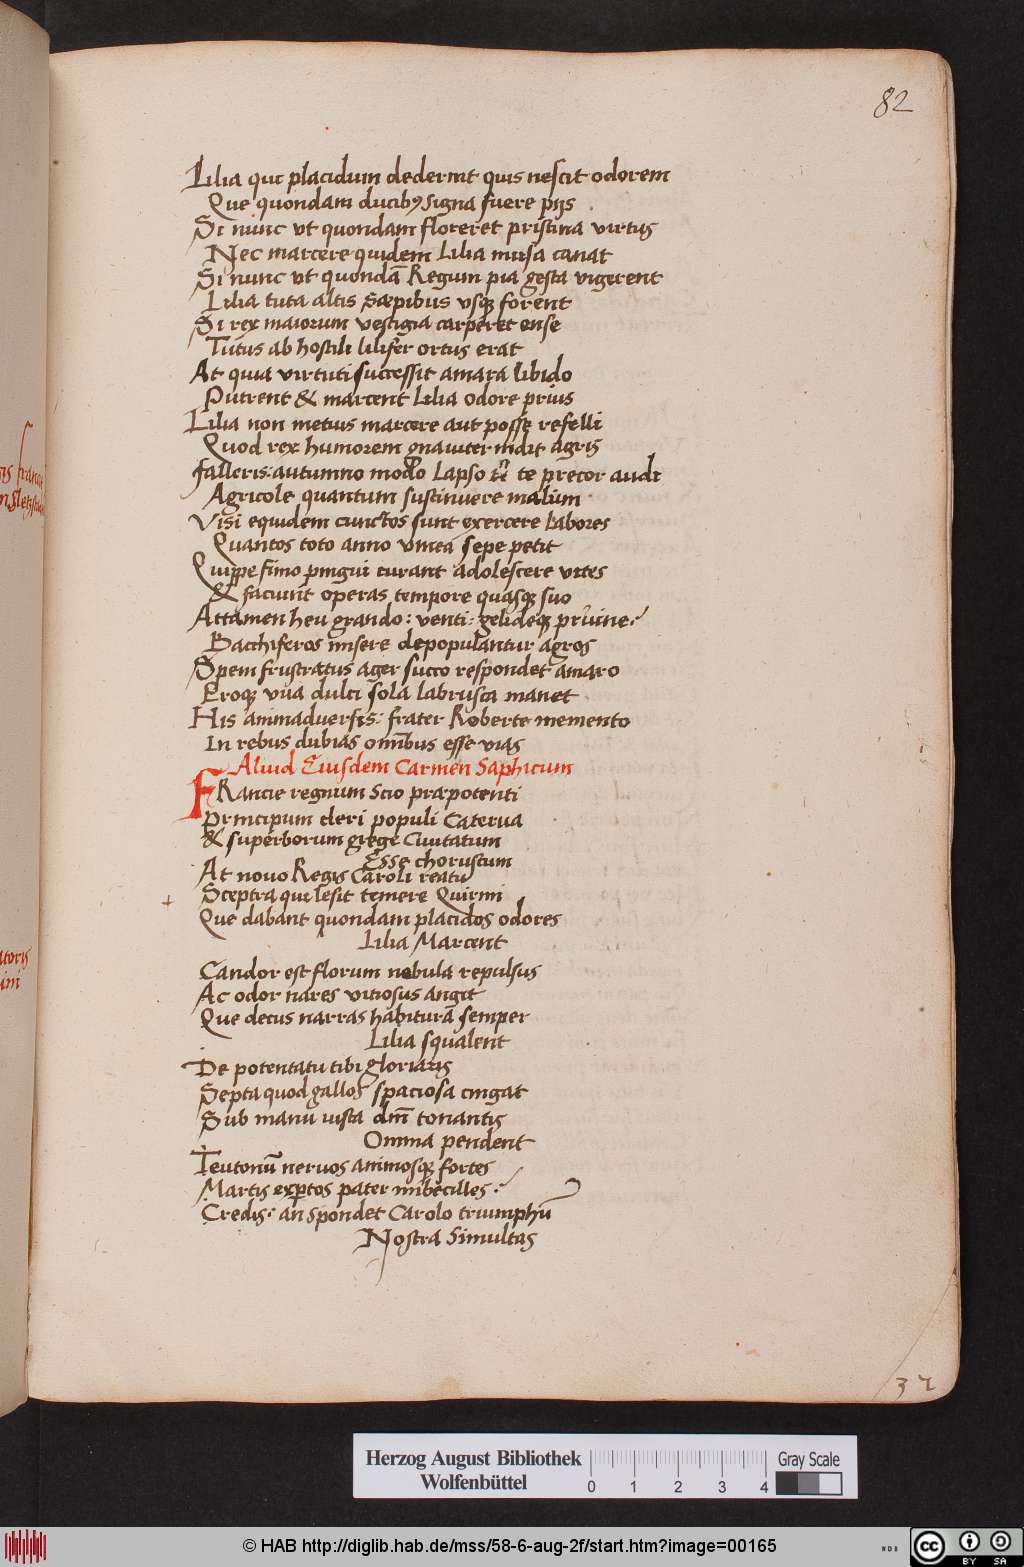 82
Lilia que placidum dederint quis nescit odorem
Que quondam ducibꝰ signa fuere pijs
Si nunc vt quondam floreret pristina virtus
Nec marcere quidem Lilia musa canat
Si nunc vt quondā Regum pia gesta vigerent
Lilia tuta altis sæpibus vsqꝫ forent
Si rex maiorum vestigia carperet ense
Tutus ab hostili lilifer ortus erat
At quia virtuti successit amara libido
Putrent & marcent Lilia odore prius
Lilia non metius marcere aut posse refelli
Quod rex humorem gnauiter indit agris
falleris: autumno modo Lapso te precor audi
Agricole quantum sustinuere malum
Visi equidem cunctos sunt exercere labores
Quantos toto anno vinea sepe petit
Quippe fimo pingui curant adolescere vites
& faciunt operas tempore quasqꝫ suo
Attamen heu grando: venti: gelideqꝫ pruine:
Bacchiferos misere depopulantur agros
Spem frustratus ager succo respondet amaro
Proqꝫ vua dulci sola labrusca manet
His animaduersis: frater Roberte memento
In rebus dubias omībus esse vias
Aliud Eiusdem Carmen Saphicum
FRancie regnum scio præpotenti
Principum cleri populi Caterua
& superborum grege Ciuitatum
Esse chorustum
At nouo Regis Caroli reatu
Sceptra qui lesit temere Quirini
Que dabant quondam placidos odores
Lilia Marcent
Candor est florum nebula repulsus
Ac odor nares vitiosus angit
Que decus narras habiturā semper
Lilia squalent
De potentatu tibi gloriaris
Septa quod galloꝝ spaciosa cingat
Sub manu iusta dn̄i tonantis
Omnia pendent
Teutonū neruos animosqꝫ fortes
Martis expertos pater imbecilles:
Credis: an spondet Carolo triumphū
Nostra Simultas
Herzog August Bibliothek
Wolfenbüttel
0 1 2 3 4
Gray Scale
© HAB http://diglib.hab.de/mss/58-6-aug-2f/start.htm?image=00165
cc BY SA